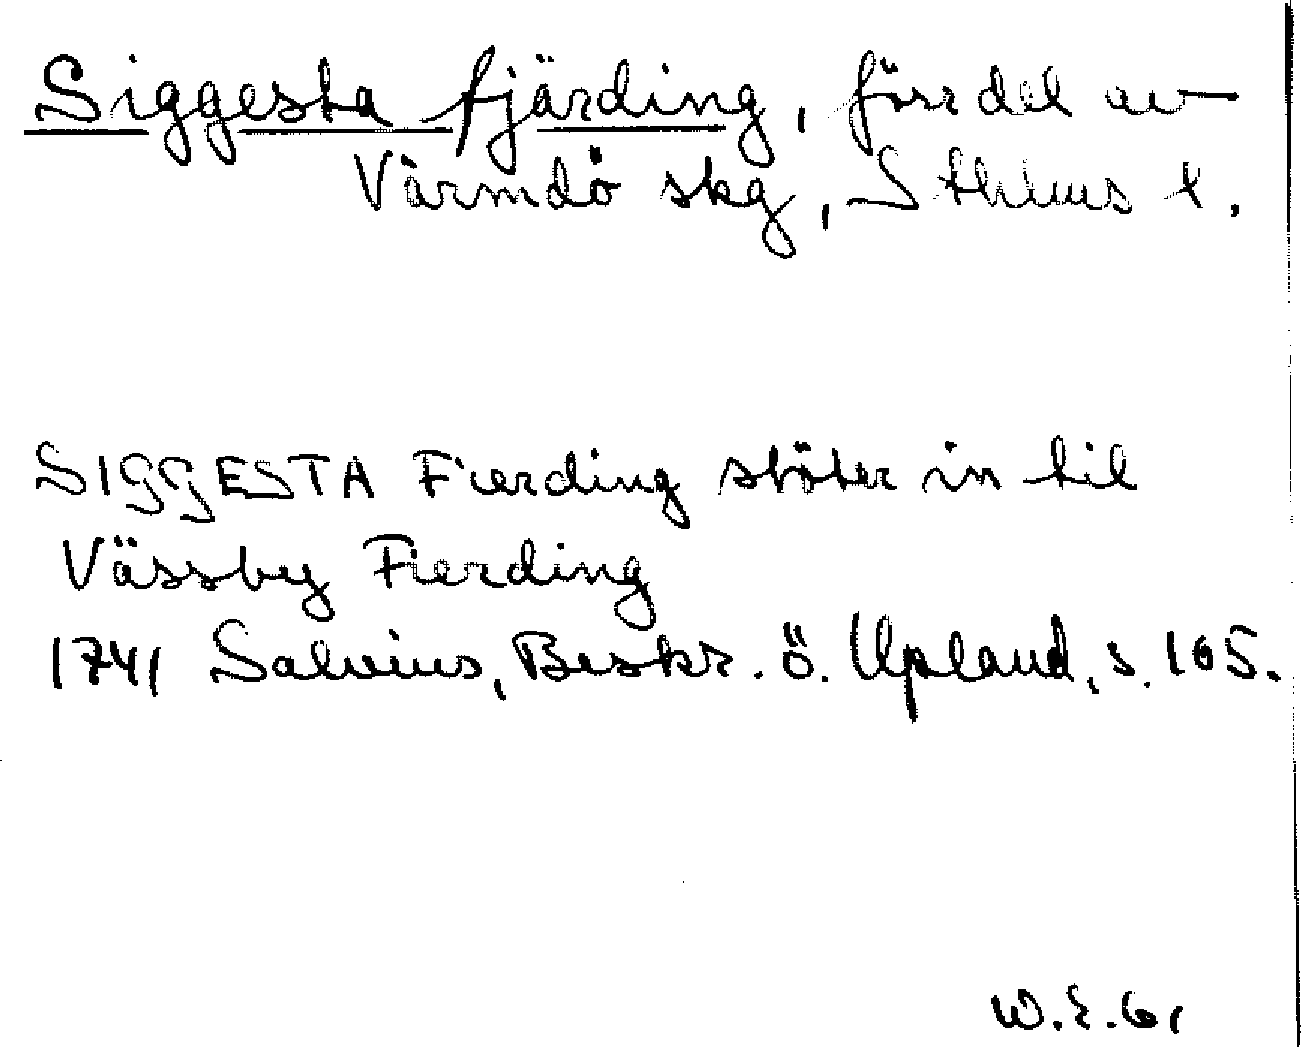 Siggesta fjärding, förr del av
Värmdö skg, Sthlms l.
SIGGESTA Fierding stöter in til
Vässby Fierding
1741 Salvius, Beskr. ö. Upland, s. 165.
W.E.61